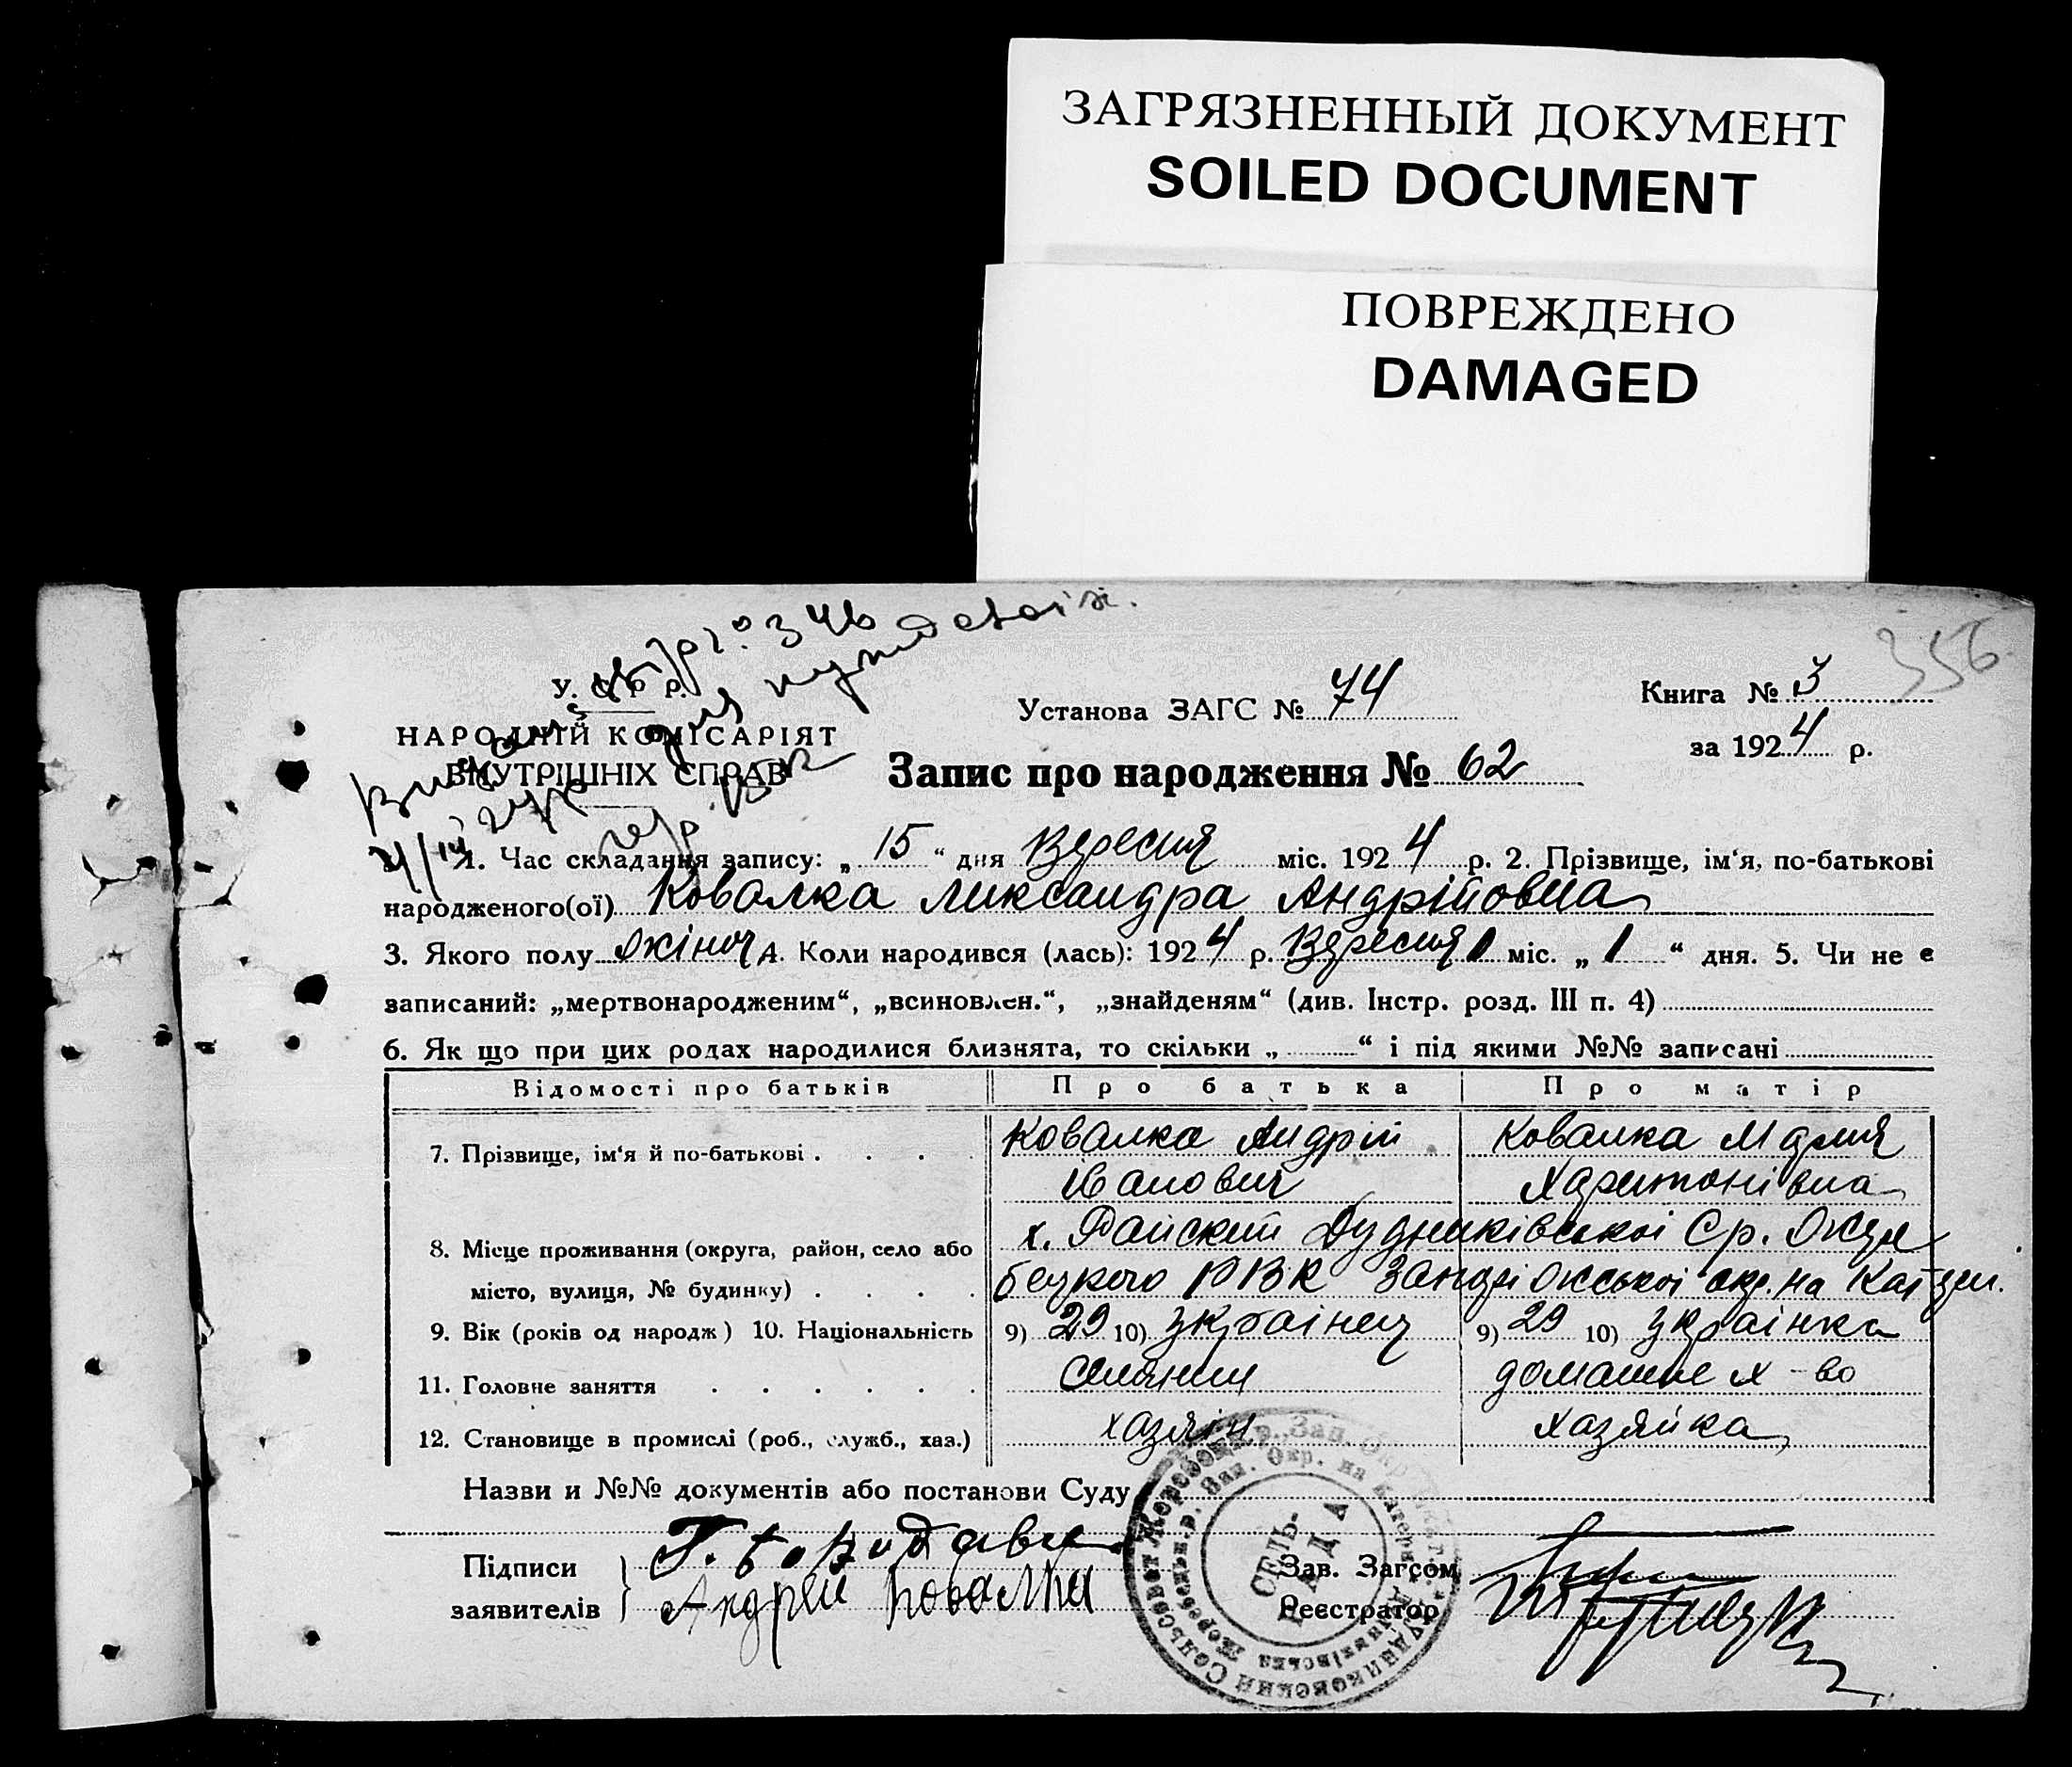 ЗАГРЯЗНЕННЫЙ ДОКУМЕНТ
SOILED DOCUMENT
ПОВРЕЖДЕНО
DAMAGED
356
У. С. Р. Р.
НАРОДНІЙ КОМІСАРІЯТ
ВНУТРІШНІХ СПРАВ
Установа ЗАГС № 74
Книга № 3
за 1924 р.
Запис про народження № 62
1. Час складання запису: „ 15 “ дня Вересня міс. 1924 р. 2. Прізвище, ім‘я, по-батькові
народженого(ої) Ковалка Ликсандра Андрійовна
3. Якого полу жіноч 4. Коли народився (лась): 1924 р. Вересня міс. „ 1 “ дня. 5. Чи не є
записаний: „мертвонародженим“, „всиновлен.“, „знайденям“ (див. Інстр. розд. III п. 4)
6. Як що при цих родах народилися близнята, то скільки „ “ і під якими №№ записані
Відомості про батьків Про батька Про матір
7. Прізвище, ім‘я й по-батькові Ковалка Андрій Ковалка Мария
Іванович Харитонівна
8. Місце проживання (округа, район, село або х. Райский Дудниківської Ср. Жере
місто, вулиця, № будинку) бецкого РВК Запоріжської окр. на Кат
9. Вік (років од народж) 10. Національність 9) 29 10) Українец 9) 29 10) Українка
11. Головне заняття селянин домашне х-во
12. Становище в промислі (роб., служб., хаз.) хазяїн хазяйка
Назви и №№ документів або постанови Суду
Підписи
заявителів
Андрей Ковалка
Зав. Загсом
Реєстратор
СЕЛЬ-
РАДА